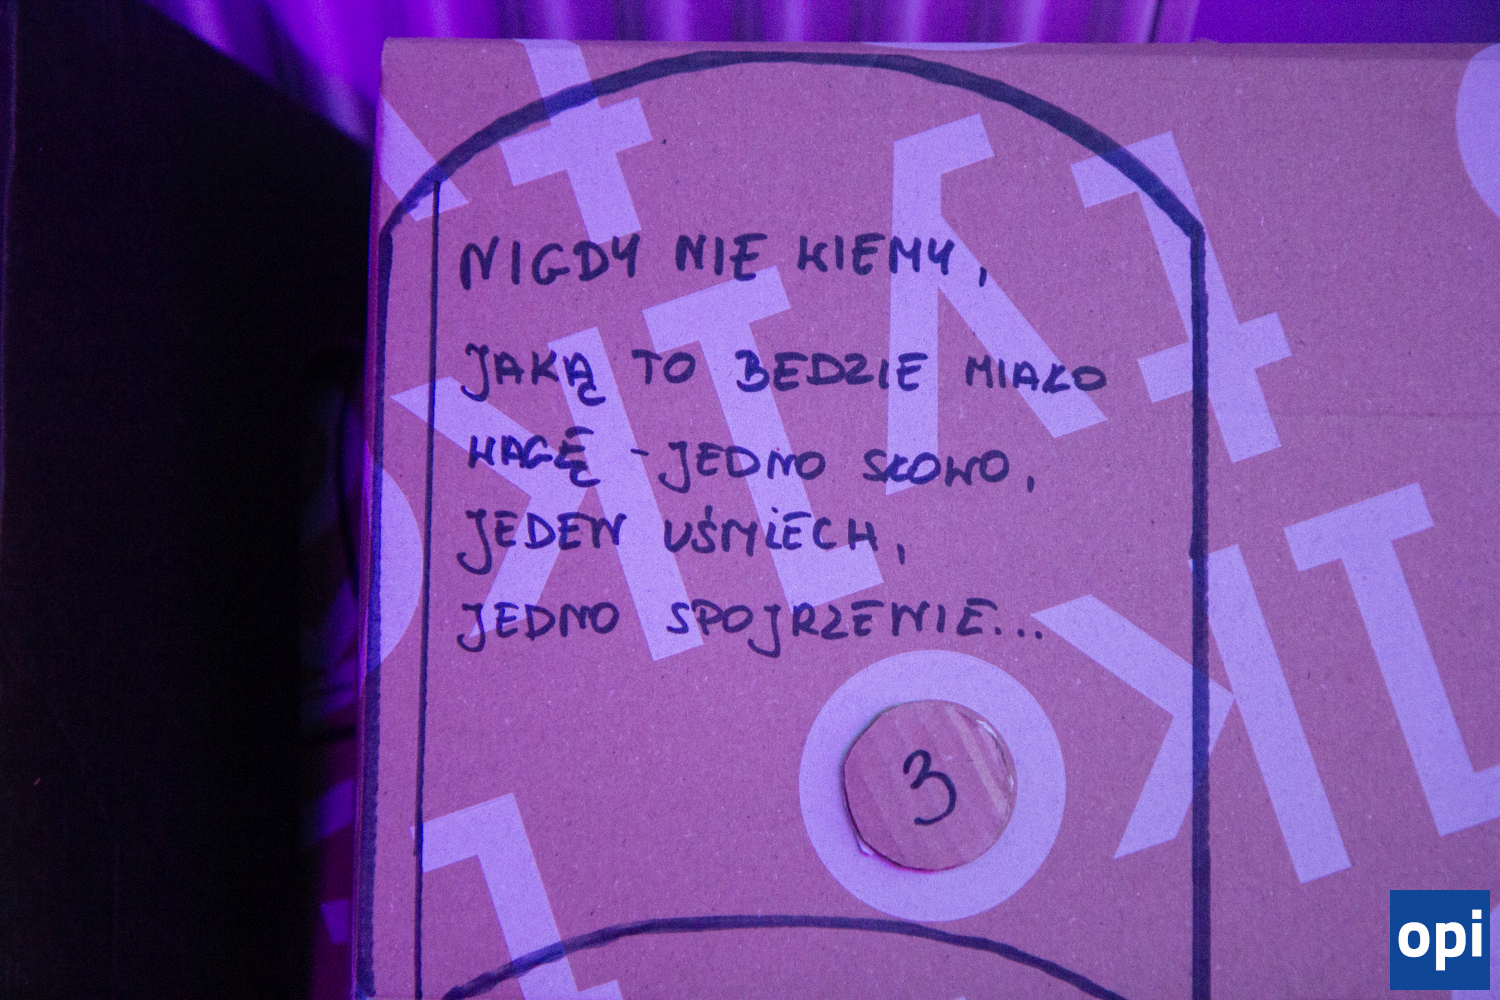 NIGDY NIE WIEMY,
JAKĄ TO BĘDZIE MIAŁO
WAGĘ - JEDNO SŁOWO,
JEDEN UŚMIECH,
JEDNO SPOJRZENIE...
3
opi